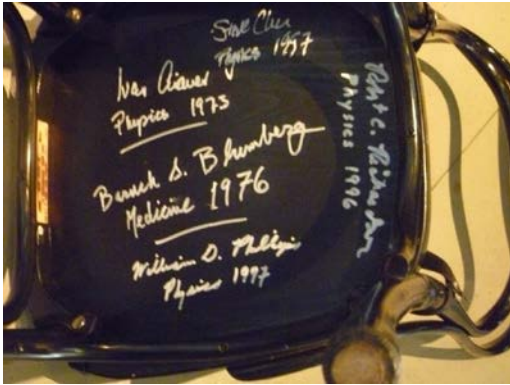 Steve Chu
Physics 1997
Ivar Giaever
Physics 1973
Baruch S. Blumberg
Medicine 1976
William D. Phillips
Physics 1997
Robert C. Richardson
Physics 1996